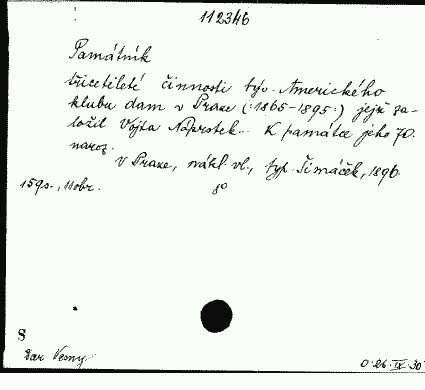 112346
Památník
třicetileté činnosti býv. Amerického
klubu dam v Praze (:1865-1895:) jejž za-
ložil Vojta Náprstek. K památce jeho 70.
naroz.
v Praze, nákl. vl., typ. Šimáček, 1896
159s., 11obr. 8°
S
Dar Vesny
0.26.IX.30